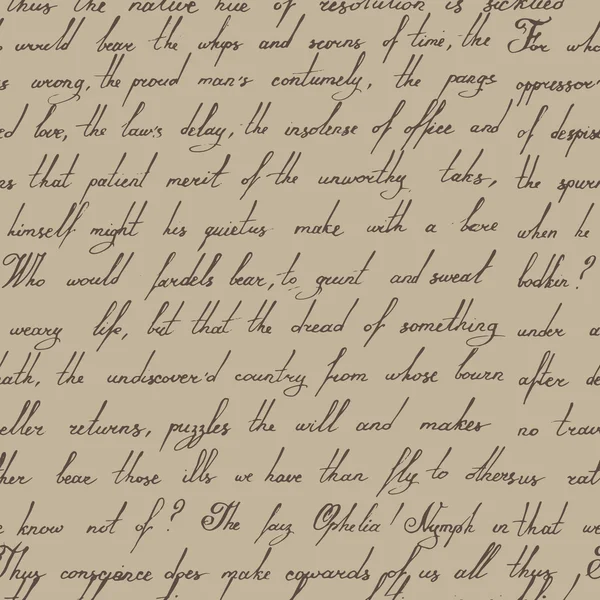 thus the native hue of resolution is sicklied
would bear the whips and scorns of time, the For who
s wrong, the proud man's contumely, the pangs oppressor'
ed love, the law's delay, the insolense of office and of despis
ns that patient merit of the unworthy taks, the spurn
himself might his quietus make with a bare when he
Who would fardels bear, to grunt and sweat bodkin?
weary life, but that the dread of something under a
eath, the undiscover'd country from whose bourn after de
eller returns, puzzles the will and makes no trav
ther bear those ills we have than fly to othersus rat
know not of? The faiz Ophelia! Nymph in that we
Thus conscience does make cowards of us all thus